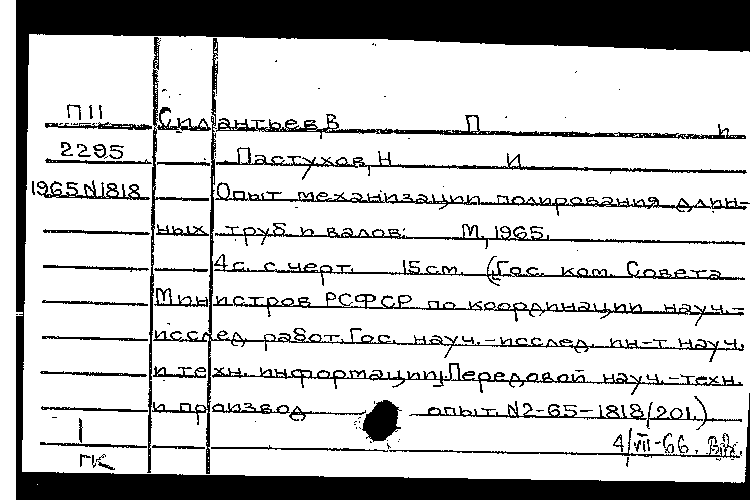 П11 Силантьев, В П и
2295 Пастухов, Н И
1965 N1818 Опыт механизации полирования длин-
ных труб и валов. М, 1965.
4с. с черт. 15см. (Гос. ком. Совета
Министров РСФСР по координации науч.-
исслед работ. Гос. науч.-исслед. ин-т науч.
и техн. информации. Передовой науч.-техн.
и производ опыт. N2-65-1818/201.)
1 4/VII-66.
ГК